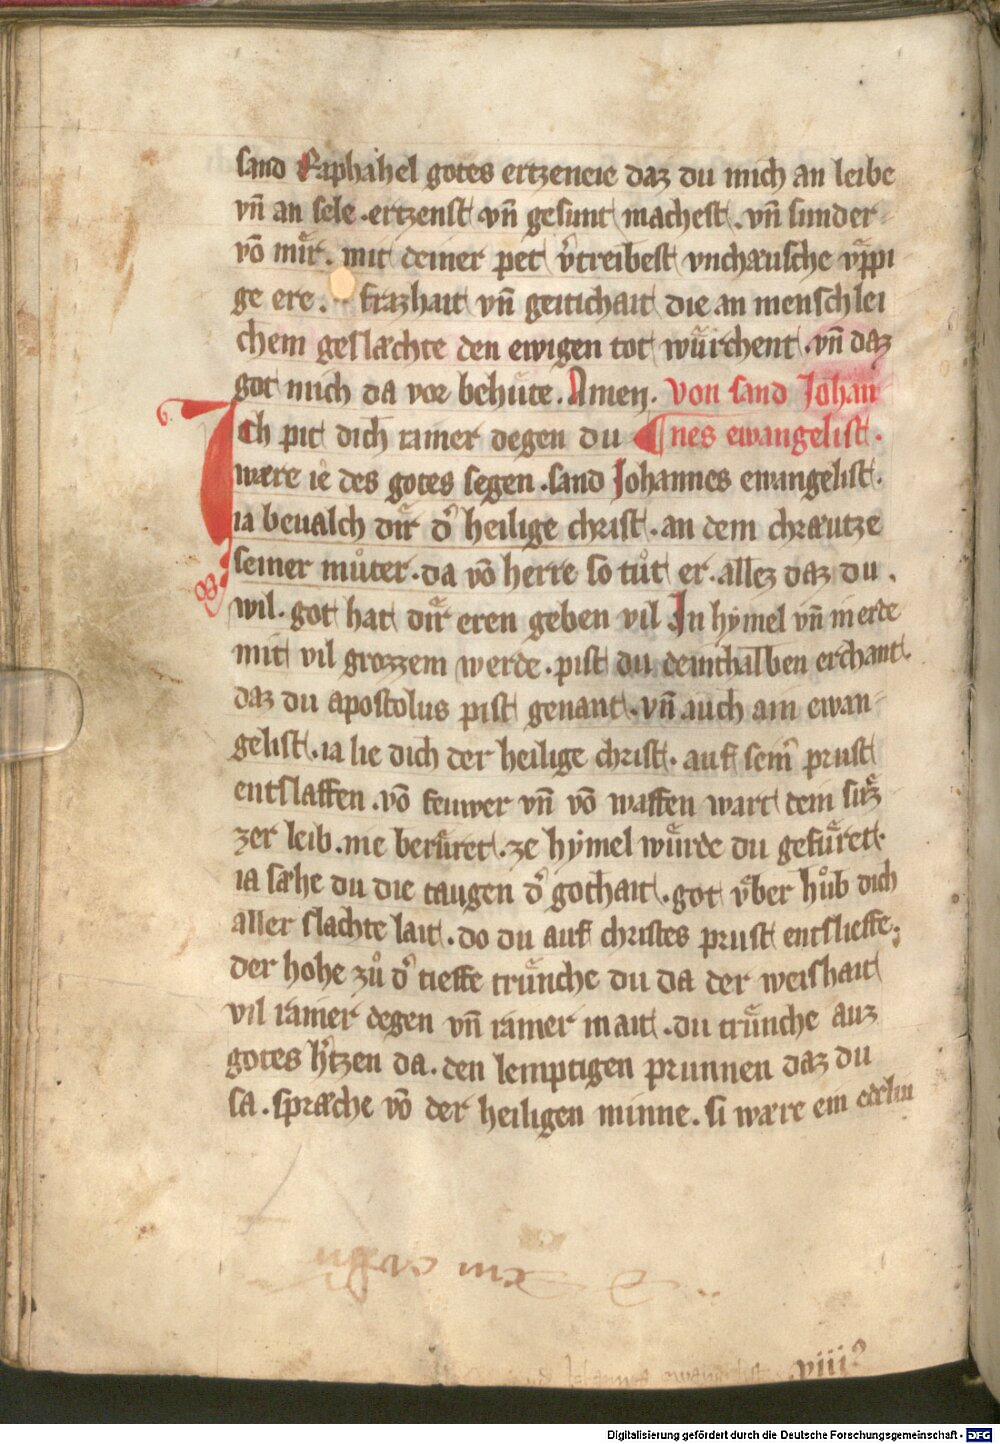 sand Raphahel gotes ertzeneie daz du mich an leibe
vn̄ an sele · ertzenst vn̄ gesunt machest · vn̄ sunder
vō mir · mit deiner pet v̾treibest vnchæusche vͤppi
ge ere · frazhait vn̄ geitichait die an menschlei
chem geslæchte den ewigen tot wuͤrchent · vn̄ daz
got mich da vor behuͤte · Amen · von sand Johan
Ich pit dich rainer degen du nes ewangelist ·
wære ie des gotes segen · sand Johannes ewangelist ·
ia beualch dir d̾ heilige christ · an dem chræutze
seiner muͦter · da vō herre so tuͦt er · allez daz du
wil · got hat dir eren geben vil In hymel vn̄ in erde
mit vil grozzem werde · pist du deinthalben erchant ·
daz du apostolus pist genant · vn̄ auch ain ewan
gelist · ia lie dich der heilige christ · auf sein̾ prust
entslaffen · vō feuwer vn̄ vō waffen wart dein suͤz
zer leib · nie beruͤret · ze hymel wuͤrde du gefuͤret ·
ia sæhe du die taugen d̾ gothait · got vͤber huͦb dich
aller slachte lait · do du auf christes prust entslieffe ·
der hohe zuͦ d̾ tieffe truͤnche du da der weishait
vil rainer degen vn̄ rainer mait · du truͤnche auz
gotes h̾tzen da · den lemptigen prunnen daz du
sa · spræche vō der heiligen minne · si wære ein edelin
viii⁹
Digitalisierung gefördert durch die Deutsche Forschungsgemeinschaft - DFG